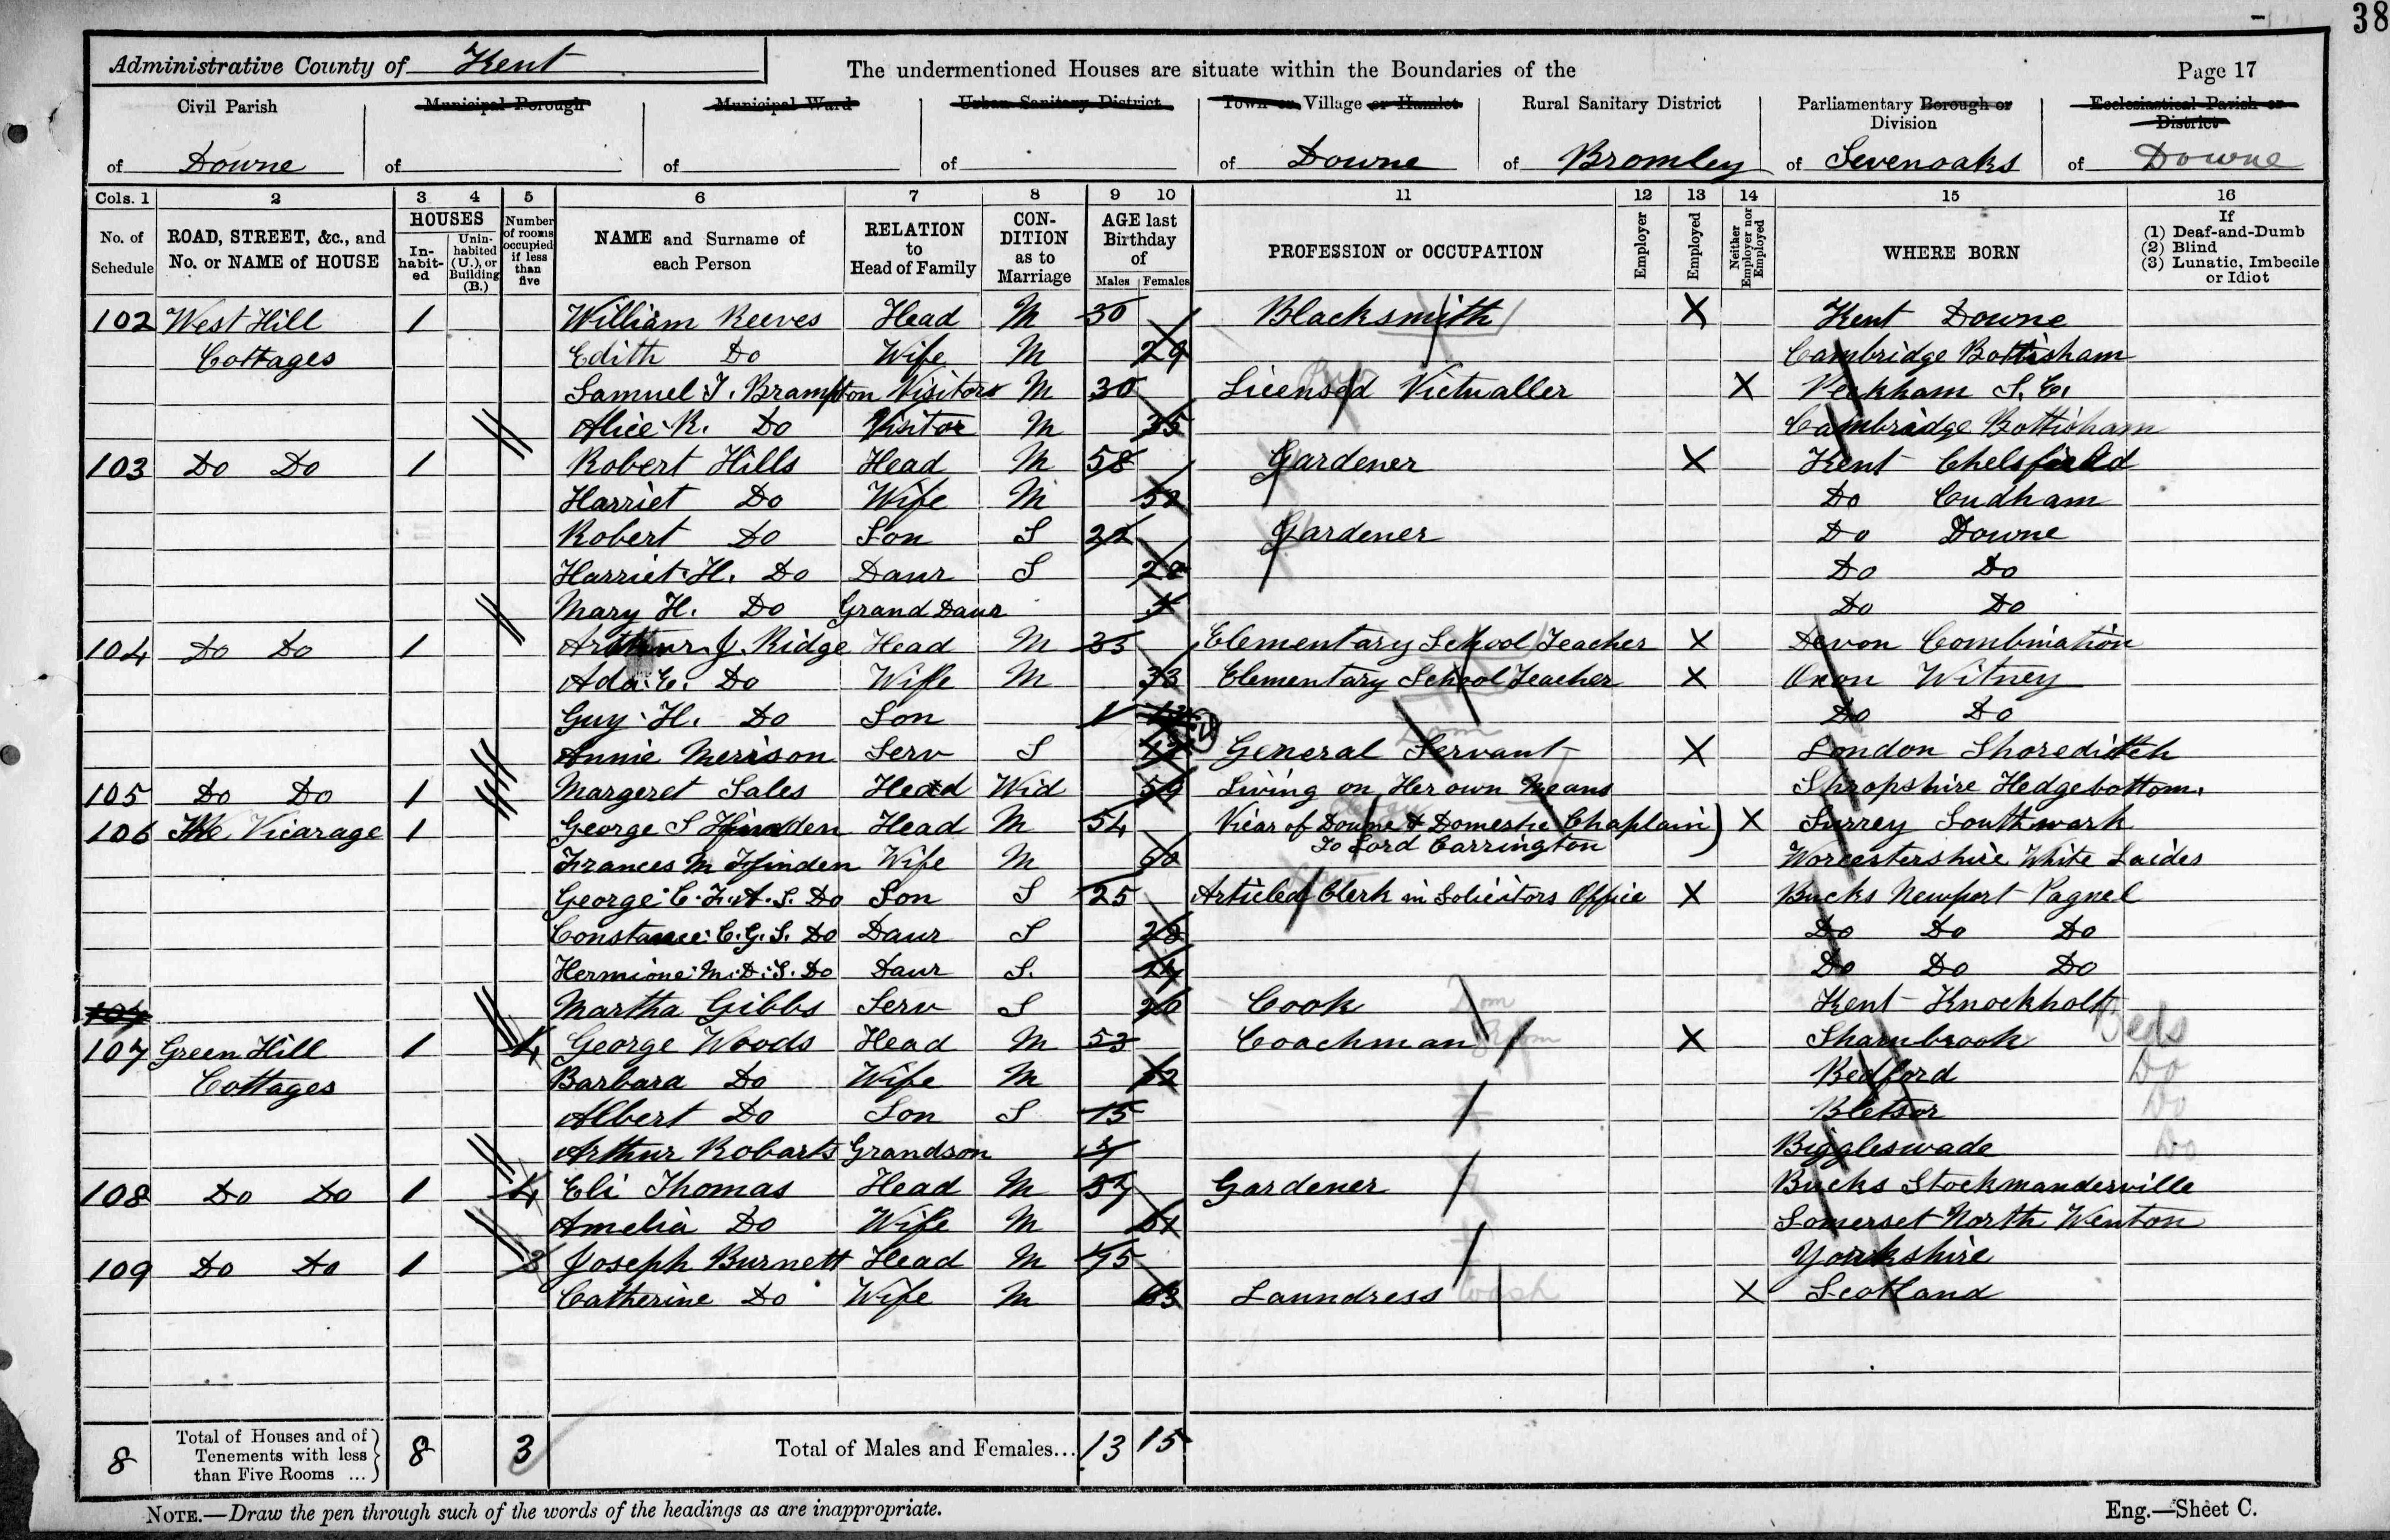 38
Administrative County of Kent
The undermentioned Houses are situate within the Boundaries of the
Page 17
Civil Parish of Downe
Municipal Borough of
Municipal Ward of
Urban Sanitary District of
Town or Village or Hamlet of Downe
Rural Sanitary District of Bromley
Parliamentary Borough or Division of Sevenoaks
Ecclesiastical Parish or District of Downe
Cols. 1 2 3 4 5 6 7 8 9 10 11 12 13 14 15 16
No. of Schedule
ROAD, STREET, &c., and No. or NAME of HOUSE
HOUSES
Inhabited
Uninhabited (U.), or Building (B.)
Number of rooms occupied if less than five
NAME and Surname of each Person
RELATION to Head of Family
CONDITION as to Marriage
AGE last Birthday of
Males Females
PROFESSION or OCCUPATION
Employer
Employed
Neither Employer nor Employed
WHERE BORN
If (1) Deaf-and-Dumb (2) Blind (3) Lunatic, Imbecile or Idiot
102 West Hill 1 William Reeves Head M 30 Blacksmith X Kent Downe
Cottages Edith Do Wife M 29 Cambridge Bottisham
Samuel J. Brampton Visitor M 30 Licensed Victualler X Peckham S.E.
Alice R. Do Visitor M 35 Cambridge Bottisham
103 Do Do 1 Robert Hills Head M 58 Gardener X Kent Chelsfield
Harriet Do Wife M 52 Do Cudham
Robert Do Son S 22 Gardener Do Downe
Harriet H. Do Daur S 20 Do Do
Mary H. Do Grand Daur Do Do
104 Do Do 1 Arthur J. Ridge Head M 35 Elementary School Teacher X Devon Combmation
Ada E. Do Wife M 33 Elementary School Teacher X Oxon Witney
Guy H. Do Son 1 Do Do
Annie Merrison Serv S General Servant Dom X London Shoreditch
105 Do Do 1 Margeret Sales Head Wid 59 Living on Her own Means Shropshire Hedgebottom.
106 The Vicarage 1 George S Hinden Head M 54 Vicar of Downe & Domestic Chaplain X Surrey Southwark
To Lord Carrington
Frances M Hinden Wife M 50 Worcestershire White Laides
George C. F. A. S. Do Son S 25 Articled Clerk in Solicitors Office X Bucks Newport Pagnel
Constance C. G. S. Do Daur S 28 Do Do Do
Hermione M. D. S. Do Daur S. 14 Do Do Do
107 Martha Gibbs Serv S 20 Cook Dom Kent Knockholt
107 Green Hill 1 4 George Woods Head M 53 Coachman Dom X Sharnbrook Beds
Cottages Barbara Do Wife M 52 Bedford Do
Albert Do Son S 15 Bletsor Do
Arthur Robarts Grandson Biggleswade Do
108 Do Do 1 4 Eli Thomas Head M 57 Gardener Bucks Stockmanderville
Amelia Do Wife M Somerset North Wenton
109 Do Do 1 3 Joseph Burnett Head M 75 Yorkshire
Catherine Do Wife M 63 Laundress Wash X Scotland
8 Total of Houses and of Tenements with less than Five Rooms ... 8 3 Total of Males and Females... 13 15
NOTE.—Draw the pen through such of the words of the headings as are inappropriate.
Eng.—Sheet C.